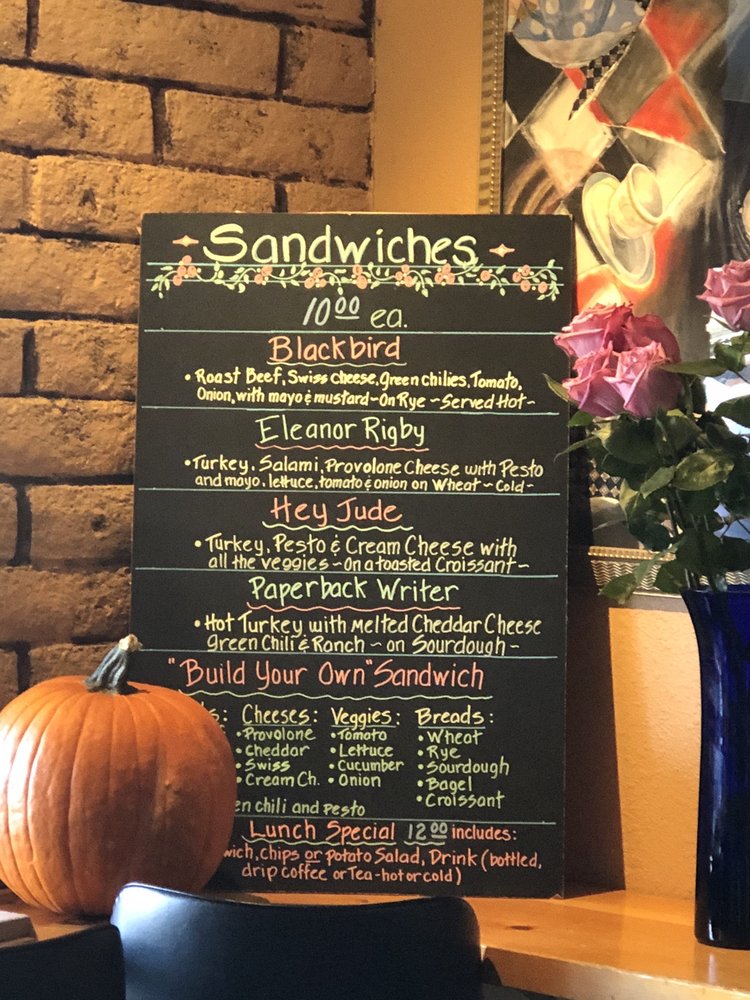 Sandwiches
10⁰⁰ ea.
Blackbird
• Roast Beef, Swiss cheese, green chilies, Tomato,
Onion, with mayo & mustard ~ On Rye ~ Served Hot ~
Eleanor Rigby
• Turkey, Salami, Provolone Cheese with Pesto
and mayo, lettuce, tomato & onion on Wheat ~ Cold ~
Hey Jude
• Turkey, Pesto & Cream Cheese with
all the veggies ~ On a toasted Croissant ~
Paperback Writer
• Hot Turkey with Melted Cheddar Cheese
green Chili & Ranch ~ on Sourdough ~
"Build Your Own" Sandwich
Cheeses: Veggies: Breads:
• Provolone • Tomato • Wheat
• Cheddar • Lettuce • Rye
• Swiss • Cucumber • Sourdough
• Cream Ch. • Onion • Bagel
• Croissant
chili and pesto
Lunch Special 12⁰⁰ includes:
chips or potato Salad, Drink (bottled,
drip coffee or Tea - hot or cold)